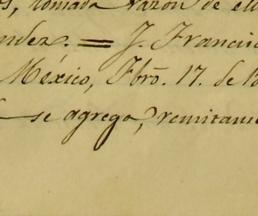 s, tomada razón de ell
ndez. = J. Francisc
México, Fbro. 17. de 18
se agrega, remitans